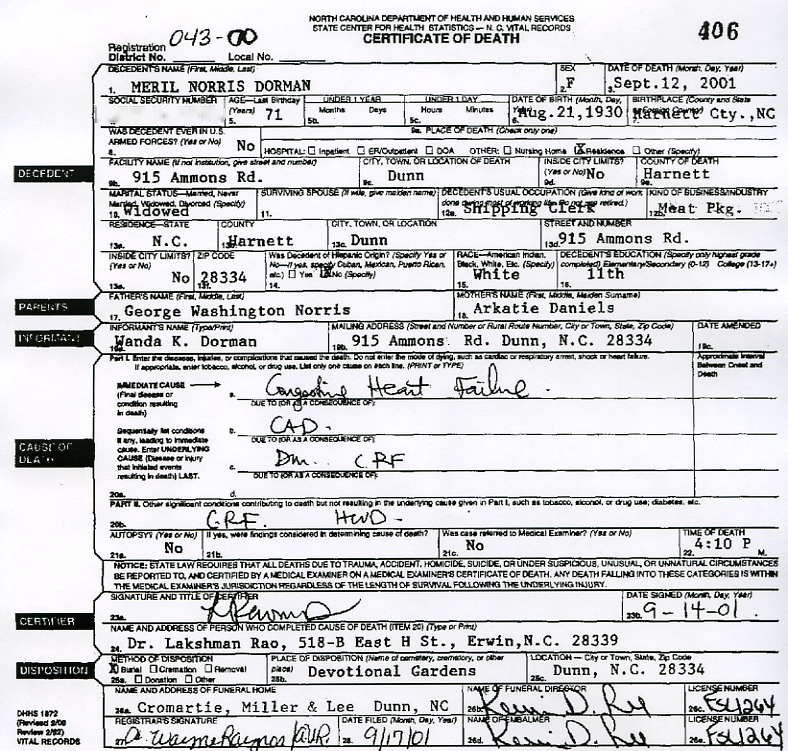 NORTH CAROLINA DEPARTMENT OF HEALTH AND HUMAN SERVICES
STATE CENTER FOR HEALTH STATISTICS – N. C. VITAL RECORDS
CERTIFICATE OF DEATH
406
Registration District No. 043-00 Local No.
DECEDENT'S NAME (First, Middle, Last) SEX DATE OF DEATH (Month, Day, Year)
1. MERIL NORRIS DORMAN 2. F 3. Sept.12, 2001
SOCIAL SECURITY NUMBER AGE—Last Birthday (Years) UNDER 1 YEAR UNDER 1 DAY DATE OF BIRTH (Month, Day, BIRTHPLACE (County and State
5. 71 5b. Months Days 5c. Hours Minutes Aug.21,1930 Harnett Cty.,NC
WAS DECEDENT EVER IN U.S. ARMED FORCES? (Yes or No) 9a. PLACE OF DEATH (Check only one)
8. No HOSPITAL: Inpatient ER/Outpatient DOA OTHER: Nursing Home X Residence Other (Specify)
DECEDENT
FACILITY NAME (If not institution, give street and number) CITY, TOWN, OR LOCATION OF DEATH INSIDE CITY LIMITS? (Yes or No) COUNTY OF DEATH
9b. 915 Ammons Rd. 9c. Dunn 9d. No 9e. Harnett
MARITAL STATUS—Married, Never Married, Widowed, Divorced (Specify) SURVIVING SPOUSE (If wife, give maiden name) DECEDENT'S USUAL OCCUPATION (Give kind of work done during most of working life. Do not use retired.) KIND OF BUSINESS/INDUSTRY
10. Widowed 11. 12a. Shipping Clerk 12b. Meat Pkg.
RESIDENCE—STATE COUNTY CITY, TOWN, OR LOCATION STREET AND NUMBER
13a. N.C. Harnett 13c. Dunn 13d. 915 Ammons Rd.
INSIDE CITY LIMITS? (Yes or No) ZIP CODE Was Decedent of Hispanic Origin? (Specify Yes or No—If yes, specify Cuban, Mexican, Puerto Rican, etc.) Yes X No (Specify) RACE—American Indian, Black, White, Etc. (Specify) DECEDENT'S EDUCATION (Specify only highest grade completed) Elementary/Secondary (0-12) College (13-17+)
13e. No 13f. 28334 14. 15. White 16. 11th
PARENTS
FATHER'S NAME (First, Middle, Last) MOTHER'S NAME (First, Middle, Maiden Surname)
17. George Washington Norris 18. Arkatie Daniels
INFORMANT
INFORMANT'S NAME (Type/Print) MAILING ADDRESS (Street and Number or Rural Route Number, City or Town, State, Zip Code) DATE AMENDED
19a. Wanda K. Dorman 19b. 915 Ammons Rd. Dunn, N.C. 28334 19c.
Part I. Enter the diseases, injuries, or complications that caused the death. Do not enter the mode of dying, such as cardiac or respiratory arrest, shock or heart failure.
If appropriate, enter tobacco, alcohol, or drug use. List only one cause on each line. (PRINT or TYPE)
Approximate Interval Between Onset and Death
IMMEDIATE CAUSE (Final disease or condition resulting in death)
a. Congestive Heart Failure
DUE TO (OR AS A CONSEQUENCE OF):
Sequentially list conditions if any, leading to immediate cause. Enter UNDERLYING CAUSE (Disease or injury that initiated events resulting in death) LAST.
b. CAD
DUE TO (OR AS A CONSEQUENCE OF):
CAUSE OF DEATH
c. Dm. CRF
DUE TO (OR AS A CONSEQUENCE OF):
20a. d.
PART II. Other significant conditions contributing to death but not resulting in the underlying cause given in Part I, such as tobacco, alcohol, or drug use; diabetes, etc.
20b. CRF.
AUTOPSY? (Yes or No) If yes, were findings considered in determining cause of death? Was case referred to Medical Examiner? (Yes or No) TIME OF DEATH
21a. No 21b. 21c. No 22. 4:10 P M.
NOTICE: STATE LAW REQUIRES THAT ALL DEATHS DUE TO TRAUMA, ACCIDENT, HOMICIDE, SUICIDE, OR UNDER SUSPICIOUS, UNUSUAL, OR UNNATURAL CIRCUMSTANCES
BE REPORTED TO, AND CERTIFIED BY A MEDICAL EXAMINER ON A MEDICAL EXAMINER'S CERTIFICATE OF DEATH. ANY DEATH FALLING INTO THESE CATEGORIES IS WITHIN
THE MEDICAL EXAMINER'S JURISDICTION REGARDLESS OF THE LENGTH OF SURVIVAL FOLLOWING THE UNDERLYING INJURY.
SIGNATURE AND TITLE OF CERTIFIER DATE SIGNED (Month, Day, Year)
23a. 23b. 9-14-01.
CERTIFIER
NAME AND ADDRESS OF PERSON WHO COMPLETED CAUSE OF DEATH (ITEM 20) (Type or Print)
24. Dr. Lakshman Rao, 518-B East H St., Erwin,N.C. 28339
DISPOSITION
METHOD OF DISPOSITION PLACE OF DISPOSITION (Name of cemetery, crematory, or other place) LOCATION — City or Town, State, Zip Code
X Burial Cremation Removal
25a. Donation Other 25b. Devotional Gardens 25c. Dunn, N.C. 28334
NAME AND ADDRESS OF FUNERAL HOME NAME OF FUNERAL DIRECTOR LICENSE NUMBER
26a. Cromartie, Miller & Lee Dunn, NC 26b. Kevin D. Lee 26c. FSL1264
DHHS 1872
REGISTRAR'S SIGNATURE DATE FILED (Month, Day, Year) NAME OF EMBALMER LICENSE NUMBER
VITAL RECORDS
28. 9/17/01 26d. Kevin D. Lee 26e. FSL1264